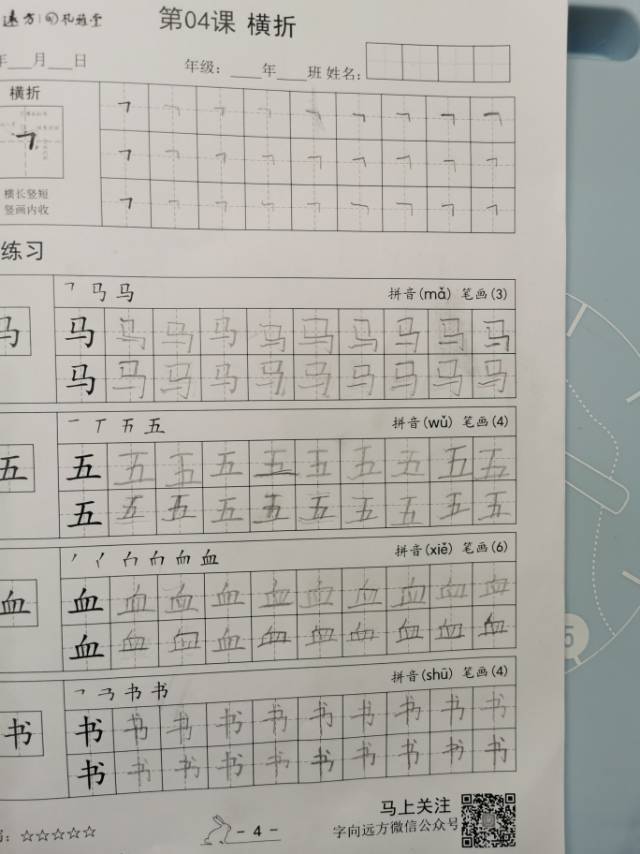 第04课 横折
年 月 日
年级: 年 班 姓名:
横折
横长竖短
竖画内收
练习
马 拼音(mǎ) 笔画(3)
马 马 马 马 马 马 马 马 马 马 马
马 马 马 马 马 马 马 马 马 马
五 拼音(wǔ) 笔画(4)
五 五 五 五 五 五 五 五 五 五 五
五 五 五 五 五 五 五 五 五 五
血 拼音(xiě) 笔画(6)
血 血 血 血 血 血 血 血 血 血 血
血 血 血 血 血 血 血 血 血 血
书 拼音(shū) 笔画(4)
书 书 书 书 书 书 书 书 书 书 书
书 书 书 书 书 书 书 书 书 书
☆☆☆☆☆
- 4 -
马上关注
字向远方微信公众号
5